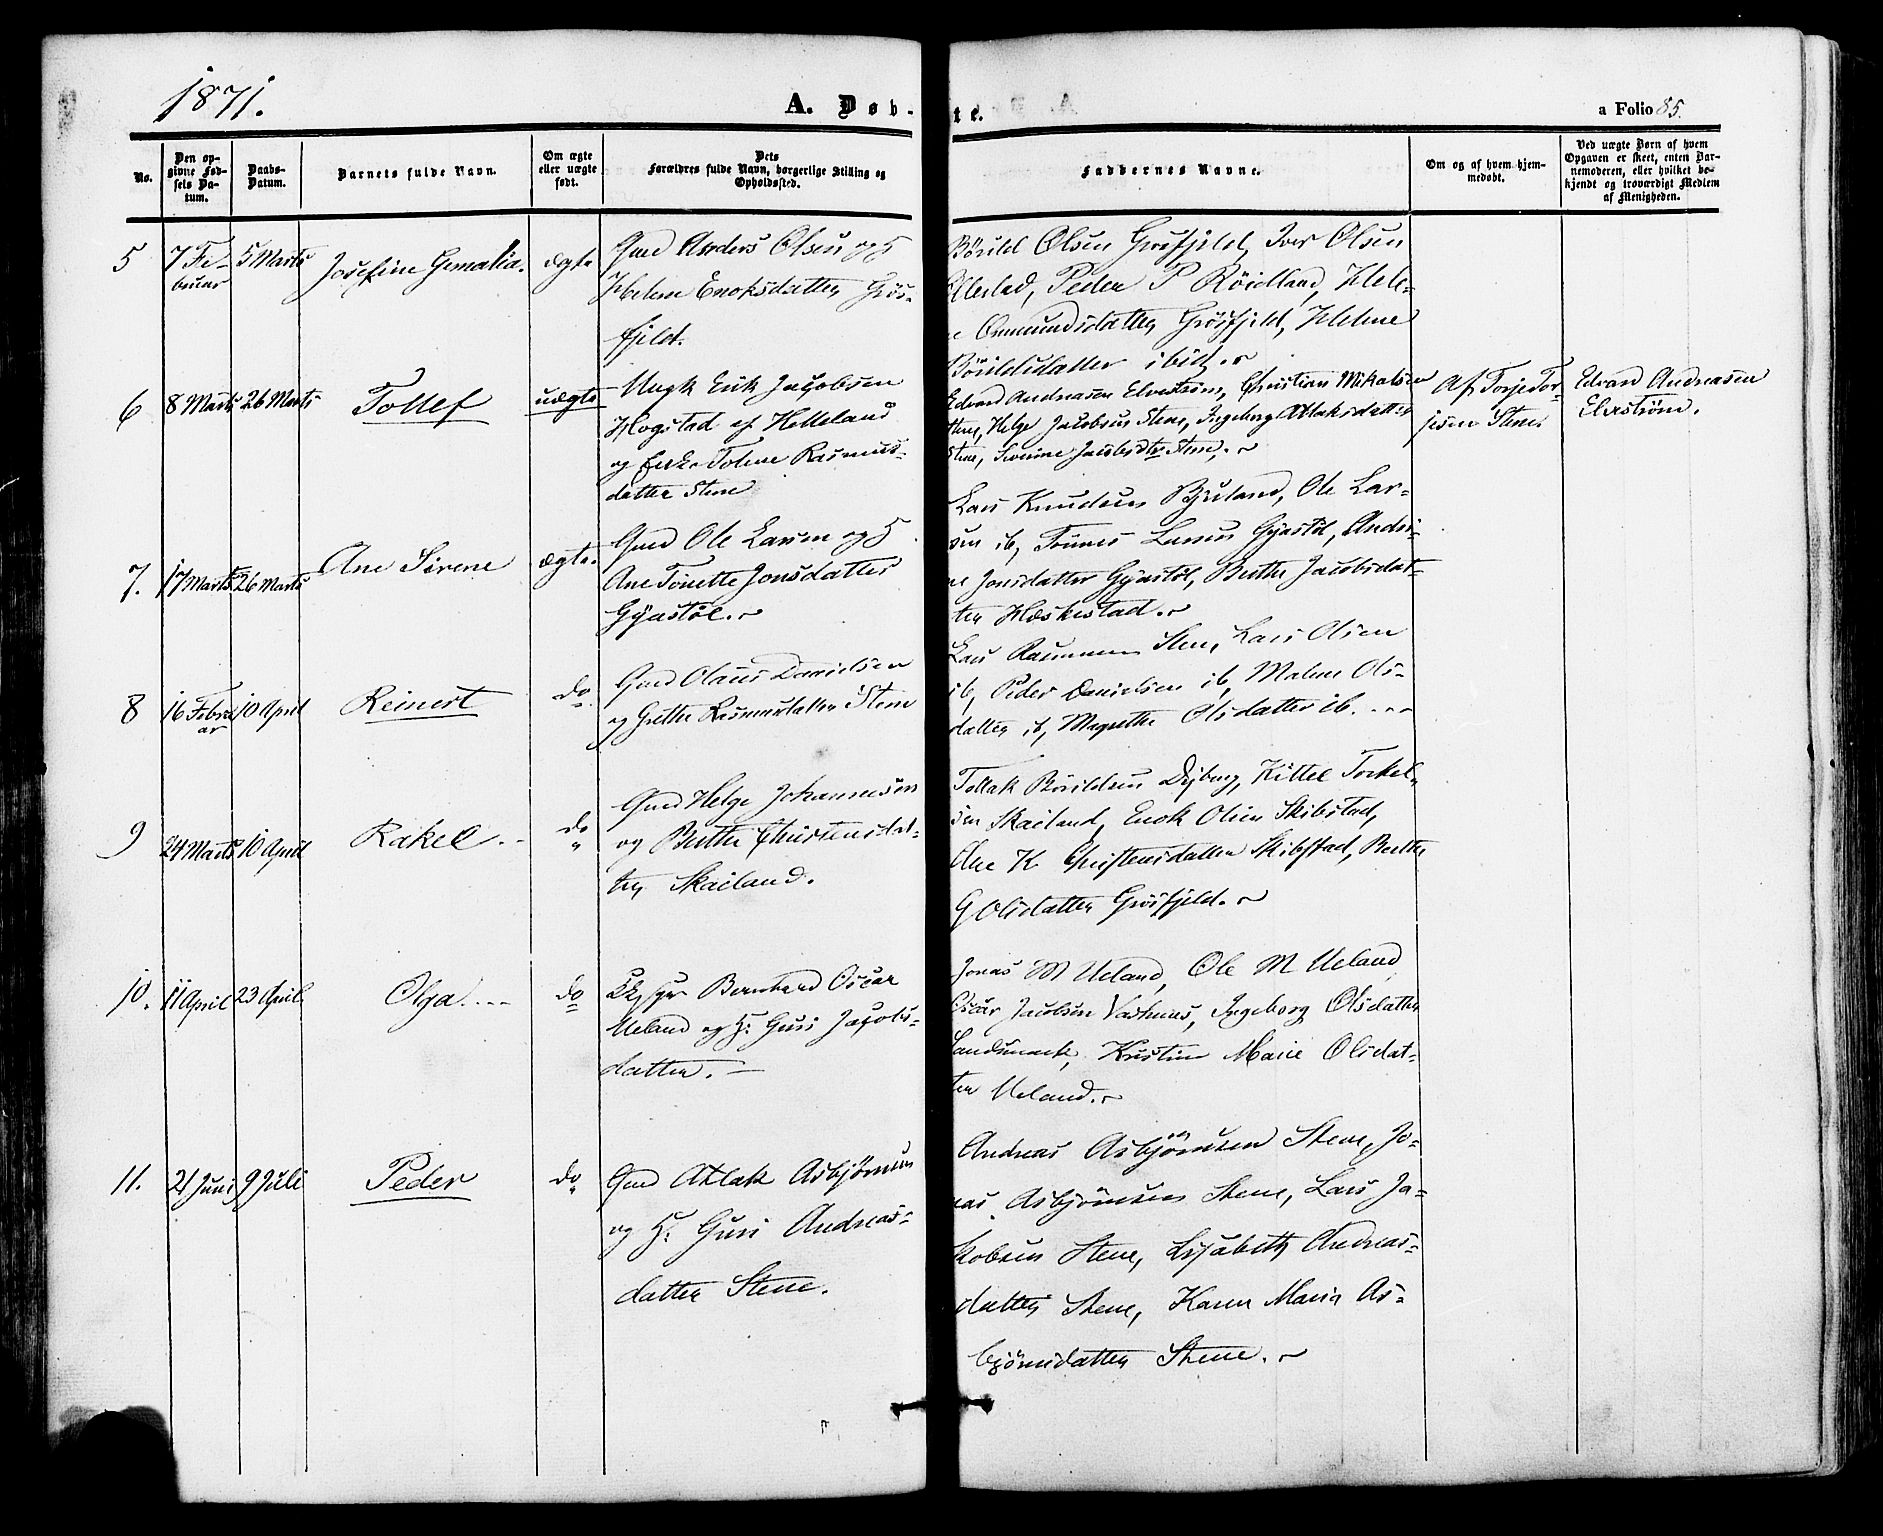 1871.
A. Døb-
te.
a Folio 85.
No.
Den op-
givne Fød-
sels Da-
tum.
Daabs-
Datum.
Barnets fulde Navn.
Om ægte
eller uægte
født.
Dets
Forældres fulde Navn, borgerlige Stilling og
Opholdssted.
Faddernes Navne.
Om og af hvem hjem-
medøbt.
Ved uægte Børn af hvem
Opgaven er skeet, enten Bar-
nemoderen, eller hvilket be-
kjendt og troværdigt Medlem
af Menigheden.
5
7 Fe-
bruar
5 Marts
Josefine Gemalia.
ægte
Gmd Anders Olsen og
Helene Enoksdatter Grøs-
fjeld.
Børild Olsen Grøsfjeld, Iver Olsen
Ellestad, Peder P Røidland, Hele-
ne Omundsdatter Grøsfjeld, Helene
Børildsdatter ibid.
6
8 Marts
26 Marts
Tollef
uægte
Ungk Erik Jacobsen
Hogstad af Helleland
og Tolene Rasmus-
datter Stene
Edvard Andreasen Elvestrøm, Christian Mikalsen
Helge Jacobsen Stene, Ingeborg Atlaksdatter
Stene, Severine Jacobsdtr Stene.
Af Torje Tor-
jesen Stene
Edvard Andreasen
Elvestrøm.
7.
17 Marts
26 Marts
Ane Sirene
ægte.
Gmd Ole Larsen og
Ane Tonette Jonsdatter
Gyastøl.
Lars Knudsen Bjuland, Ole Lar-
sen ib, Tønnes Larsen Gyastøl, Andri-
ne Jonsdatter Gyastøl, Berthe Jacobsdat-
ter Hæskestad.
8
16 Febru
ar
10 April
Reinert
do
Gmd Olaus Danielsen
og Grethe Rasmusdatter Stene
Lars Rasmussen Stene, Lars Olsen
ib, Peder Danielsen ib, Malene Ols-
datter ib, Magrethe Olsdatter ib.
9
24 Marts
10 April
Rakel.
do
Gmd Helge Johannesen
og Berthe Christensdat-
ter Skailand.
Tollak Børildsen Dyborg, Kittel Torkel-
sen Skailand, Enok Olsen Skibstad,
Ane K Christensdatter Skibstad, Berthe
G Olsdatter Grøsfjeld.
10.
11 April
23 April.
Olga.
do
Bernhard Oscar
Ueland og H: Guri Jacobs-
datter.
Jonas M Ueland, Ole M Ueland,
Oscar Jacobsen Vashuus, Ingeborg Olsdatter
Landsmark, Kristine Marie Olsdat-
ter Ueland.
11.
21 Juni
9 Juli
Peder
do
Gmd Atlak Asbjørnsen
og H: Guri Andreas-
datter Stene.
Andreas Asbjørnsen Stene, Jo-
nas Asbjørnsen Stene, Lars Ja-
kobsen Stene, Lisabeth Andreas-
datter Stene, Karen Maria As-
bjørnsdatter Stene.